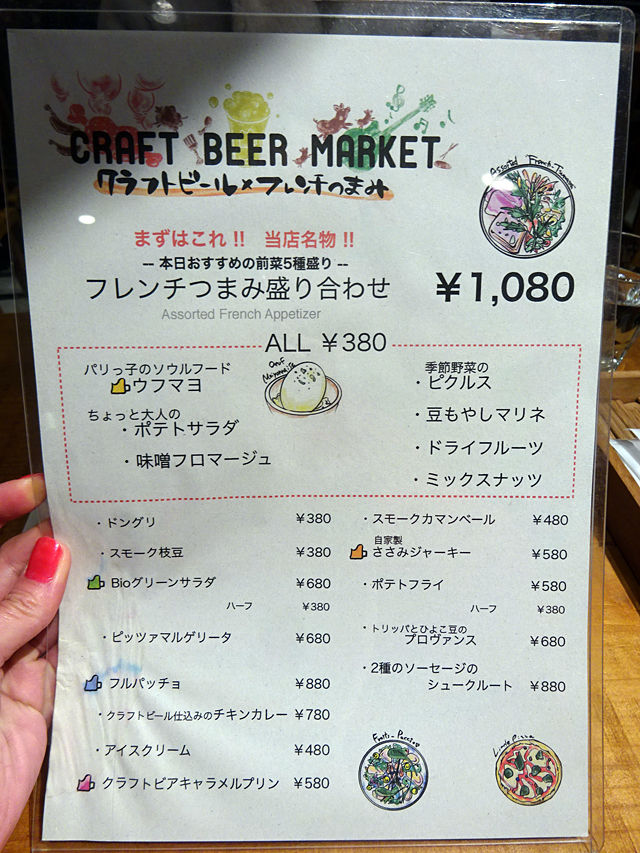 CRAFT BEER MARKET
クラフトビール×フレンチつまみ
まずはこれ!! 当店名物!!
-- 本日おすすめの前菜5種盛り --
フレンチつまみ盛り合わせ ¥1,080
Assorted French Appetizer
ALL ¥380
パリっ子のソウルフード
ウフマヨ
ちょっと大人の
・ポテトサラダ
・味噌フロマージュ
季節野菜の
・ピクルス
・豆もやしマリネ
・ドライフルーツ
・ミックスナッツ
・ドングリ ¥380
・スモーク枝豆 ¥380
Bioグリーンサラダ ¥680
ハーフ ¥380
・ピッツァマルゲリータ ¥680
フルパッチョ ¥880
・クラフトビール仕込みのチキンカレー ¥780
・アイスクリーム ¥480
クラフトビアキャラメルプリン ¥580
・スモークカマンベール ¥480
自家製
ささみジャーキー ¥580
・ポテトフライ ¥580
ハーフ ¥380
・トリッパとひよこ豆の
プロヴァンス ¥680
・2種のソーセージの
シュークルート ¥880